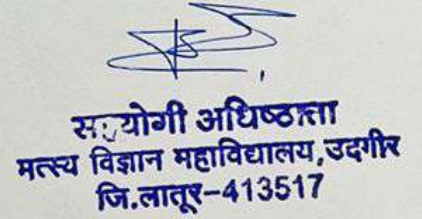 सहयोगी अधिष्ठाता
मत्स्य विज्ञान महाविद्यालय,उदगीर
जि.लातूर-413517